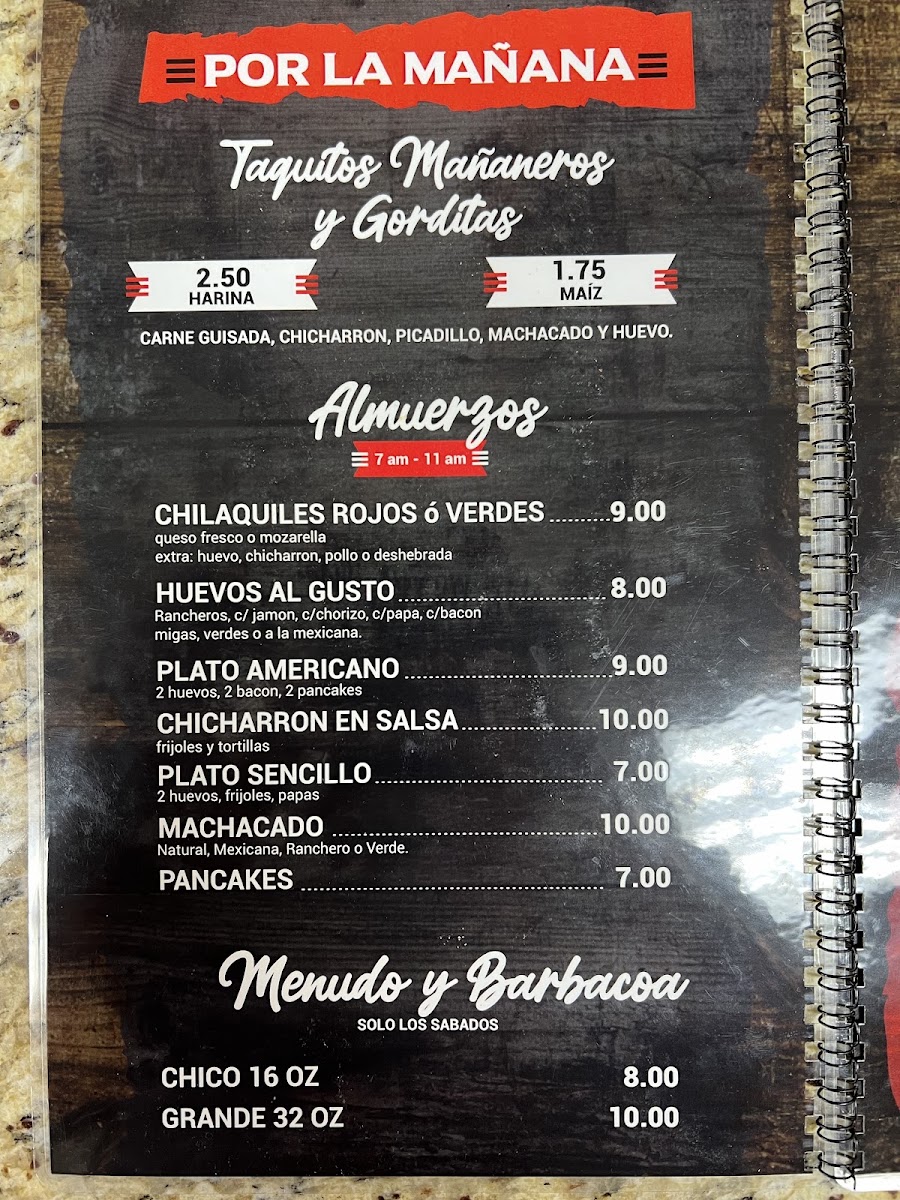 POR LA MAÑANA
Taquitos Mañaneros
y Gorditas
2.50
HARINA
1.75
MAÍZ
CARNE GUISADA, CHICHARRON, PICADILLO, MACHACADO Y HUEVO.
Almuerzos
7 am - 11 am
CHILAQUILES ROJOS ó VERDES ......... 9.00
queso fresco o mozarella
extra: huevo, chicharron, pollo o deshebrada
HUEVOS AL GUSTO ......... 8.00
Rancheros, c/ jamon, c/chorizo, c/papa, c/bacon
migas, verdes o a la mexicana.
PLATO AMERICANO ......... 9.00
2 huevos, 2 bacon, 2 pancakes
CHICHARRON EN SALSA ......... 10.00
frijoles y tortillas
PLATO SENCILLO ......... 7.00
2 huevos, frijoles, papas
MACHACADO ......... 10.00
Natural, Mexicana, Ranchero o Verde.
PANCAKES ......... 7.00
Menudo y Barbacoa
SOLO LOS SABADOS
CHICO 16 OZ 8.00
GRANDE 32 OZ 10.00